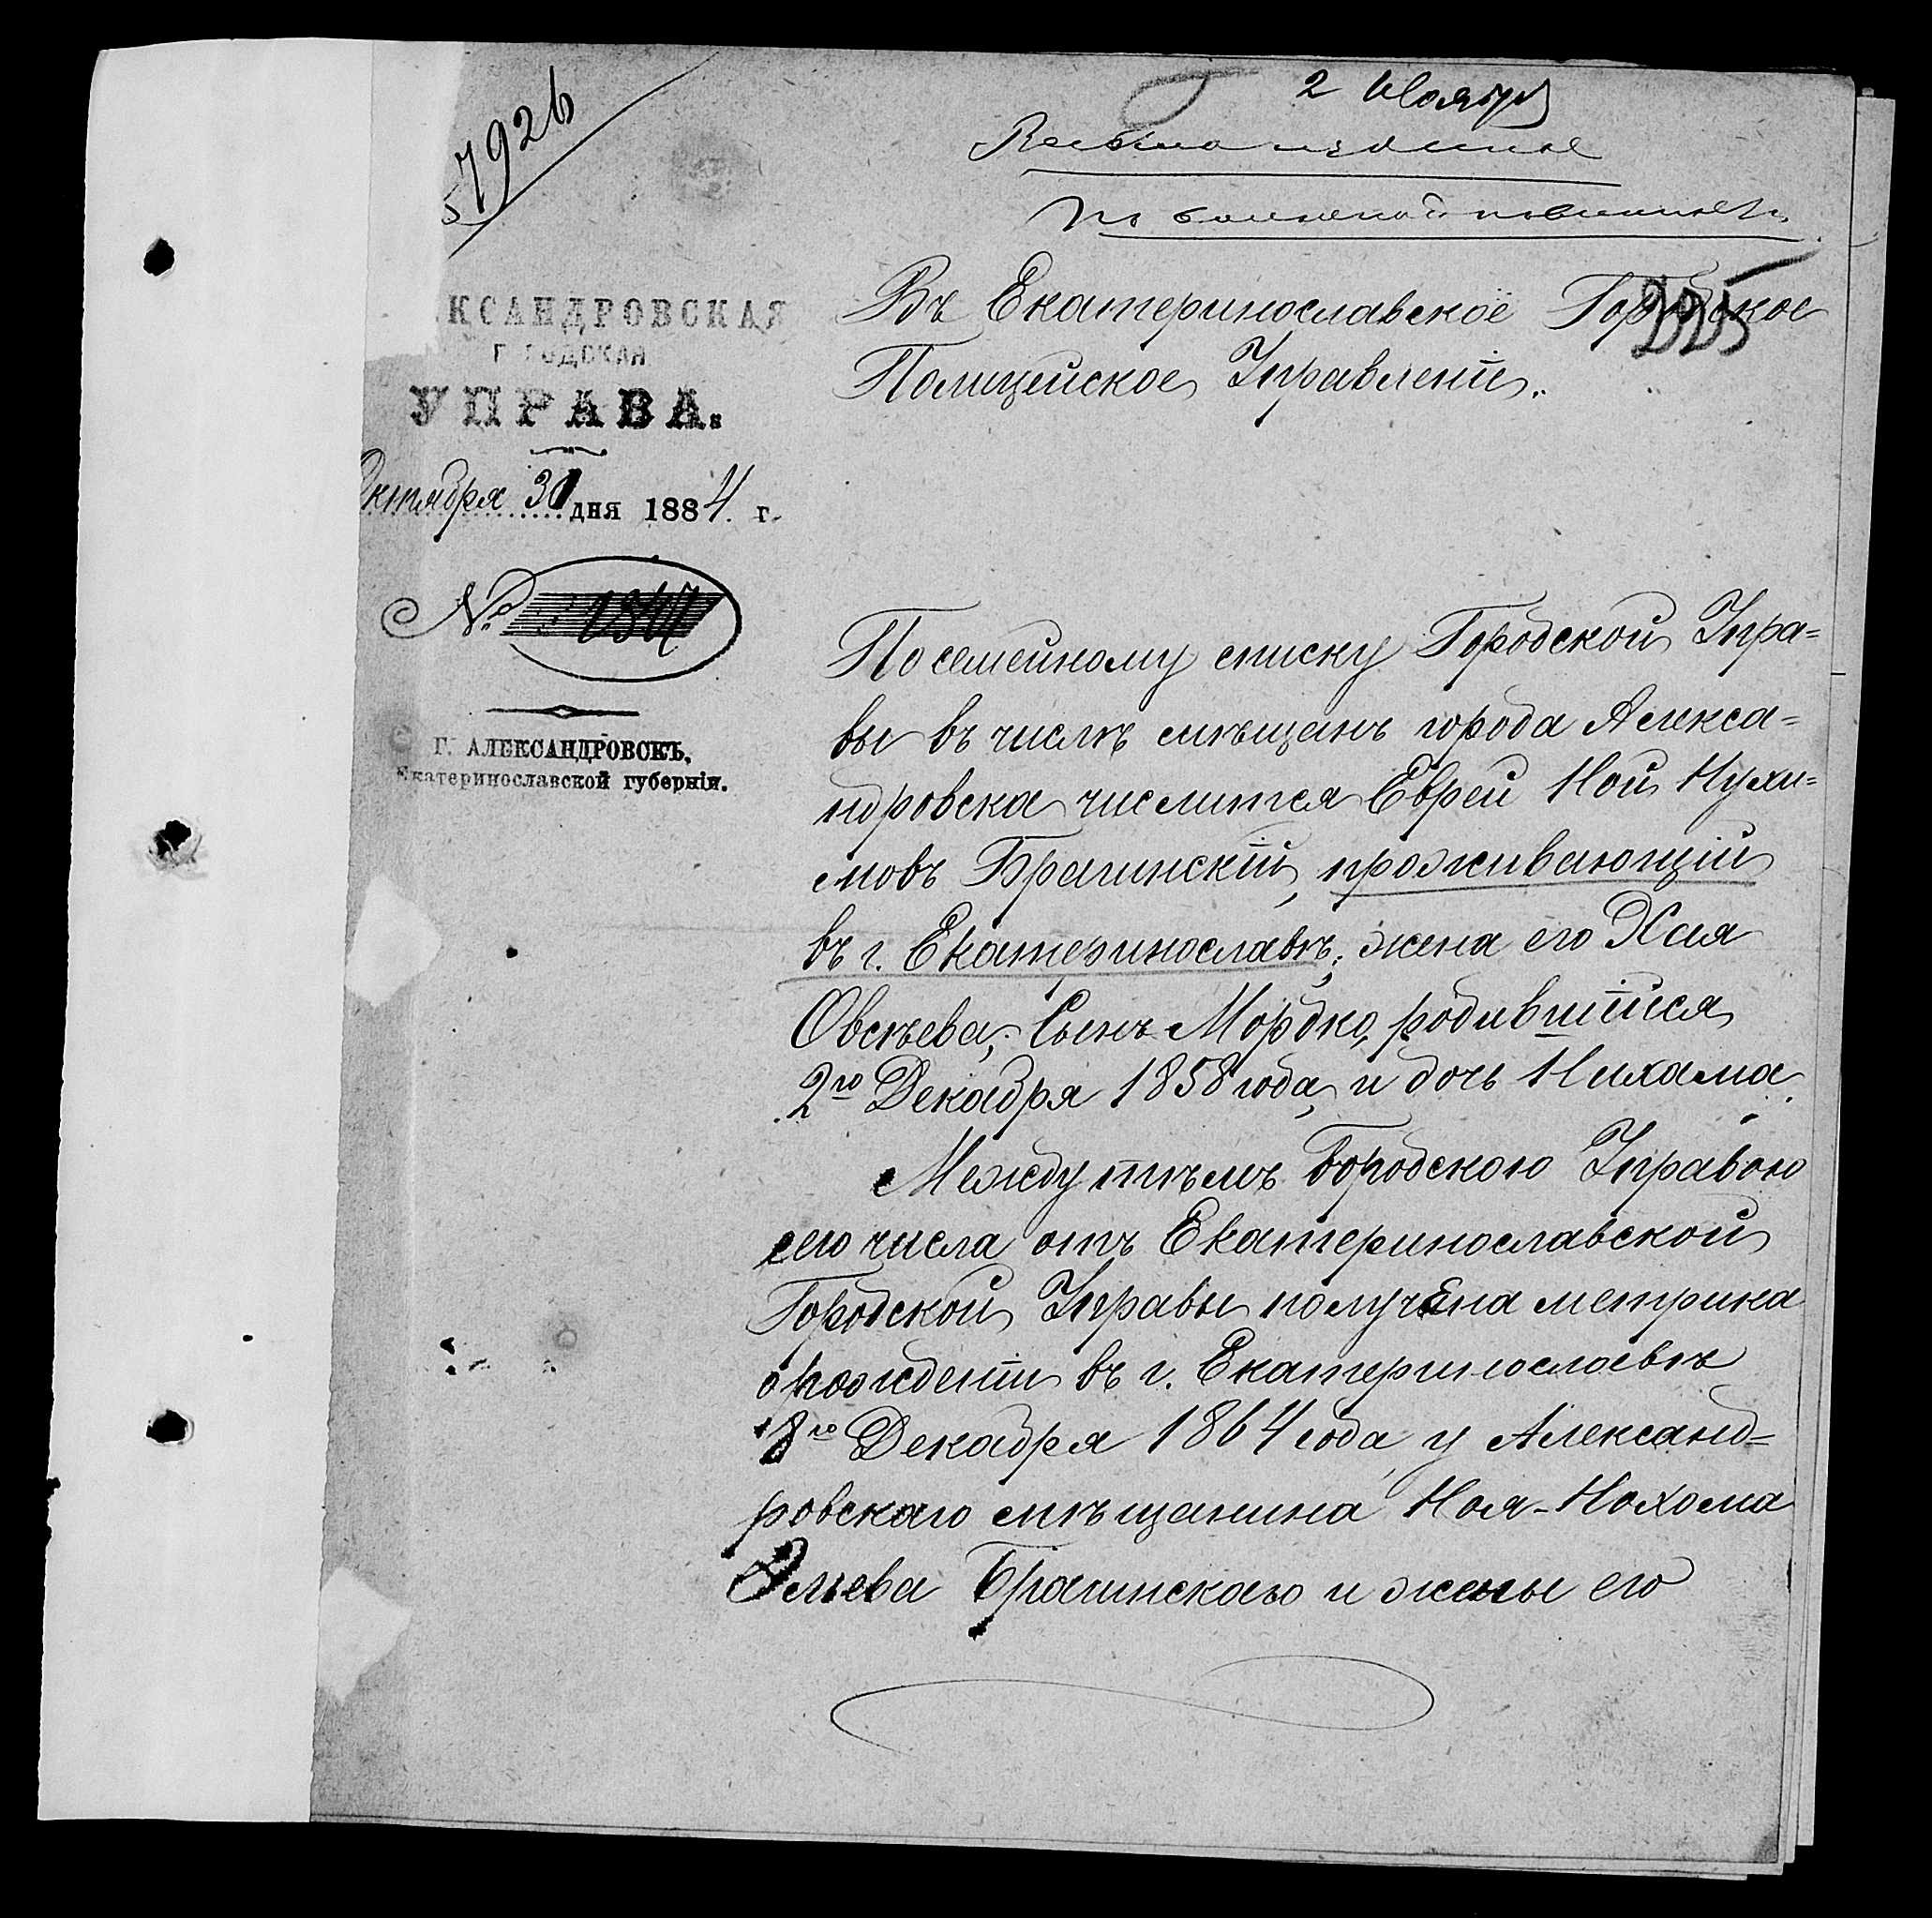 57926
2 Ноября
Весьма нужное
По воинской повинности
КСАНДРОВСКАЯ
ГОРОДСКАЯ
УПРАВА.
Октября 31 дня 1884 г.
№
Г. АЛЕКСАНДРОВСКЪ,
Екатеринославской губерніи.
Въ Екатеринославское Городское
Полицейское Управленіе.
По семейному списку Городской Упра=
вы въ числѣ мѣщанъ города Алекса=
ндровска числится Еврей Ной Нухи=
мовъ Брагинскій, проживающій
въ г. Екатеринославѣ; жена его Хая
Овсѣева; Сынъ Мордко, родившійся
2го Декабря 1858 года, и дочь Нихама.
Между тѣмъ Городскою Управою
сего числа отъ Екатеринославской
Городской Управы получена метрика
о рожденіи въ г. Екатеринославѣ
8го Декабря 1864 года у Александ=
ровскаго мѣщанина Ноя-Нохома
Элієва Брагинскаго и жены его